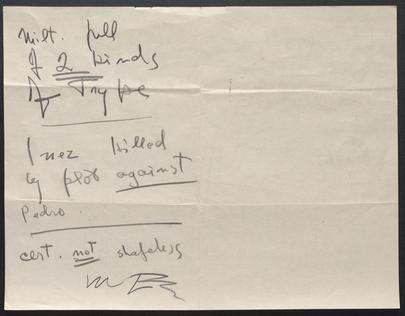 Milt. full
of 2 kinds
of Type
Inez killed
by plot against
Pedro.
cert. not shapeless